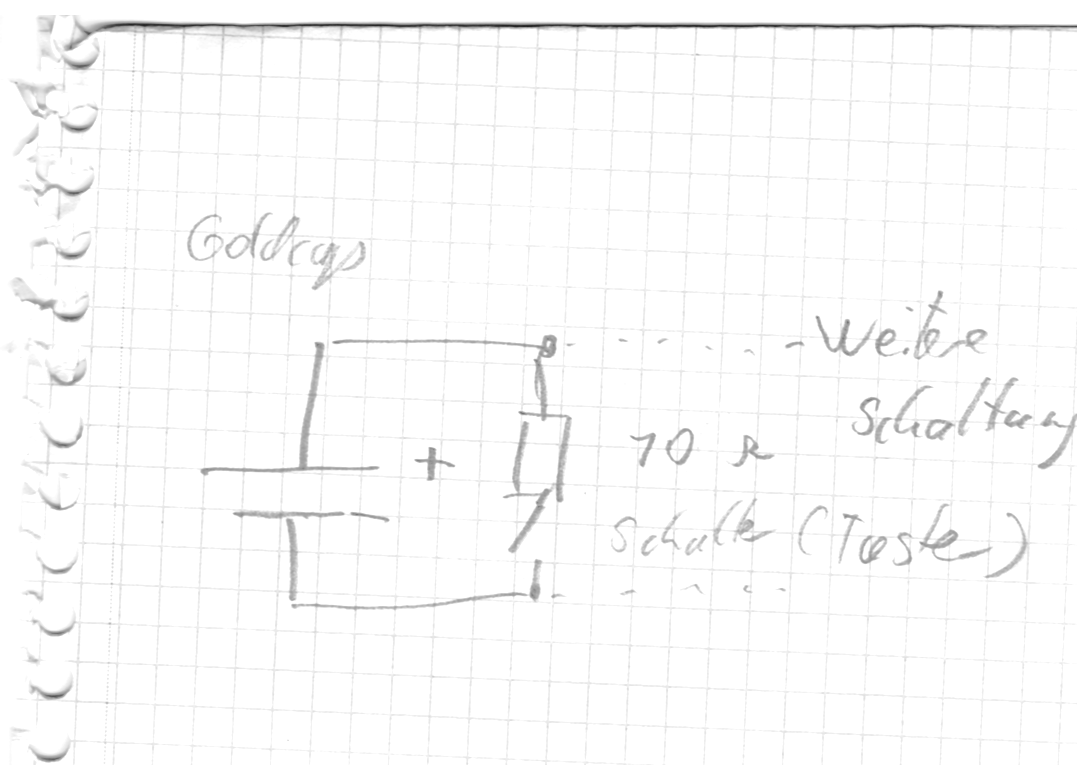 Goldcaps
Weitere
Schaltung
+
10 Ω
Schalter (Taster)